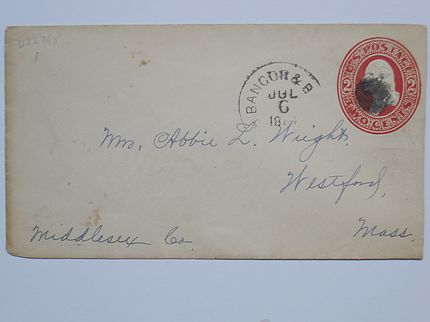 U227/15
1
U.S. POSTAGE
2 2
TWO CENTS
BANGOR & B
JUL
6
Mrs. Abbie L. Wright,
Westford,
Middlesex Co. Mass.